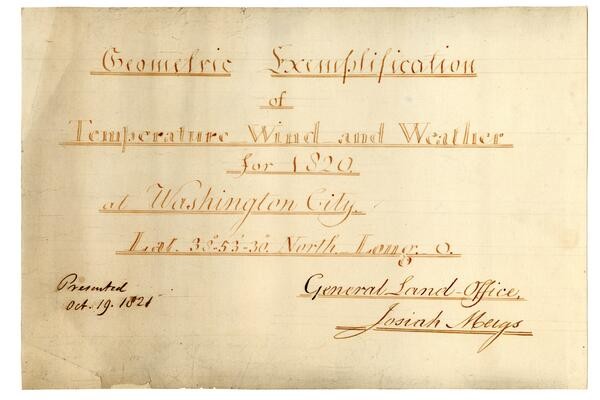 Geometric Exemplification
of
Temperature Wind and Weather
for 1820.
at Washington City.
Lat. 38°-53'-30" North Long. 0.
Presented
Oct. 19. 1821
General Land-Office,
Josiah Meigs